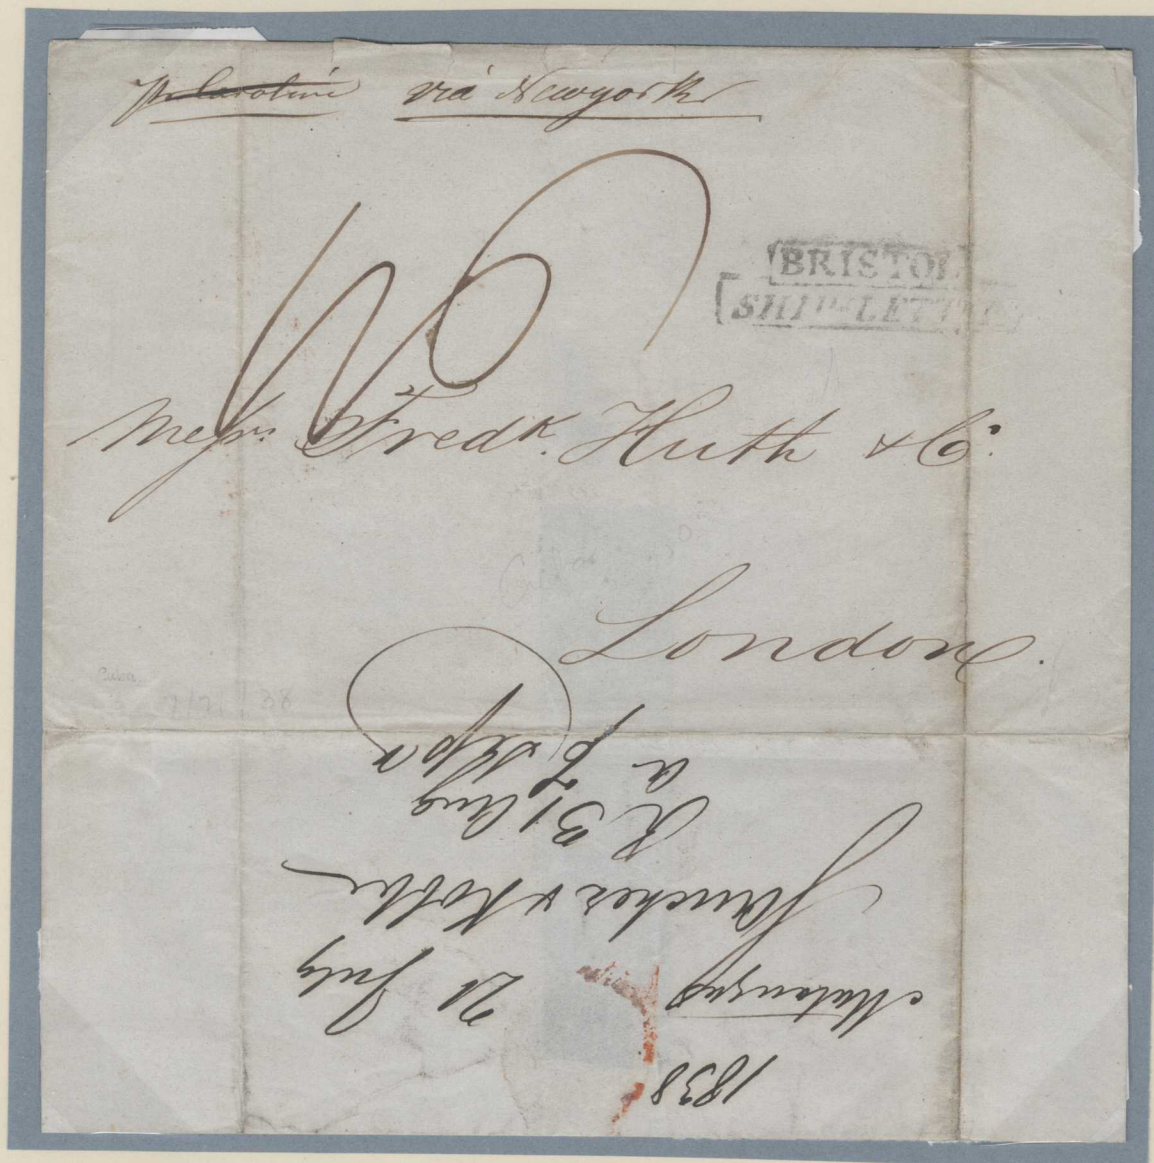 via Newyork
BRISTOL
SHIP-LETTER
Messrs. Fredk. Huth & Co.
London.
Cuba
38
1838
Matanzas
21 July
Sanchez &
R 31 Aug
a